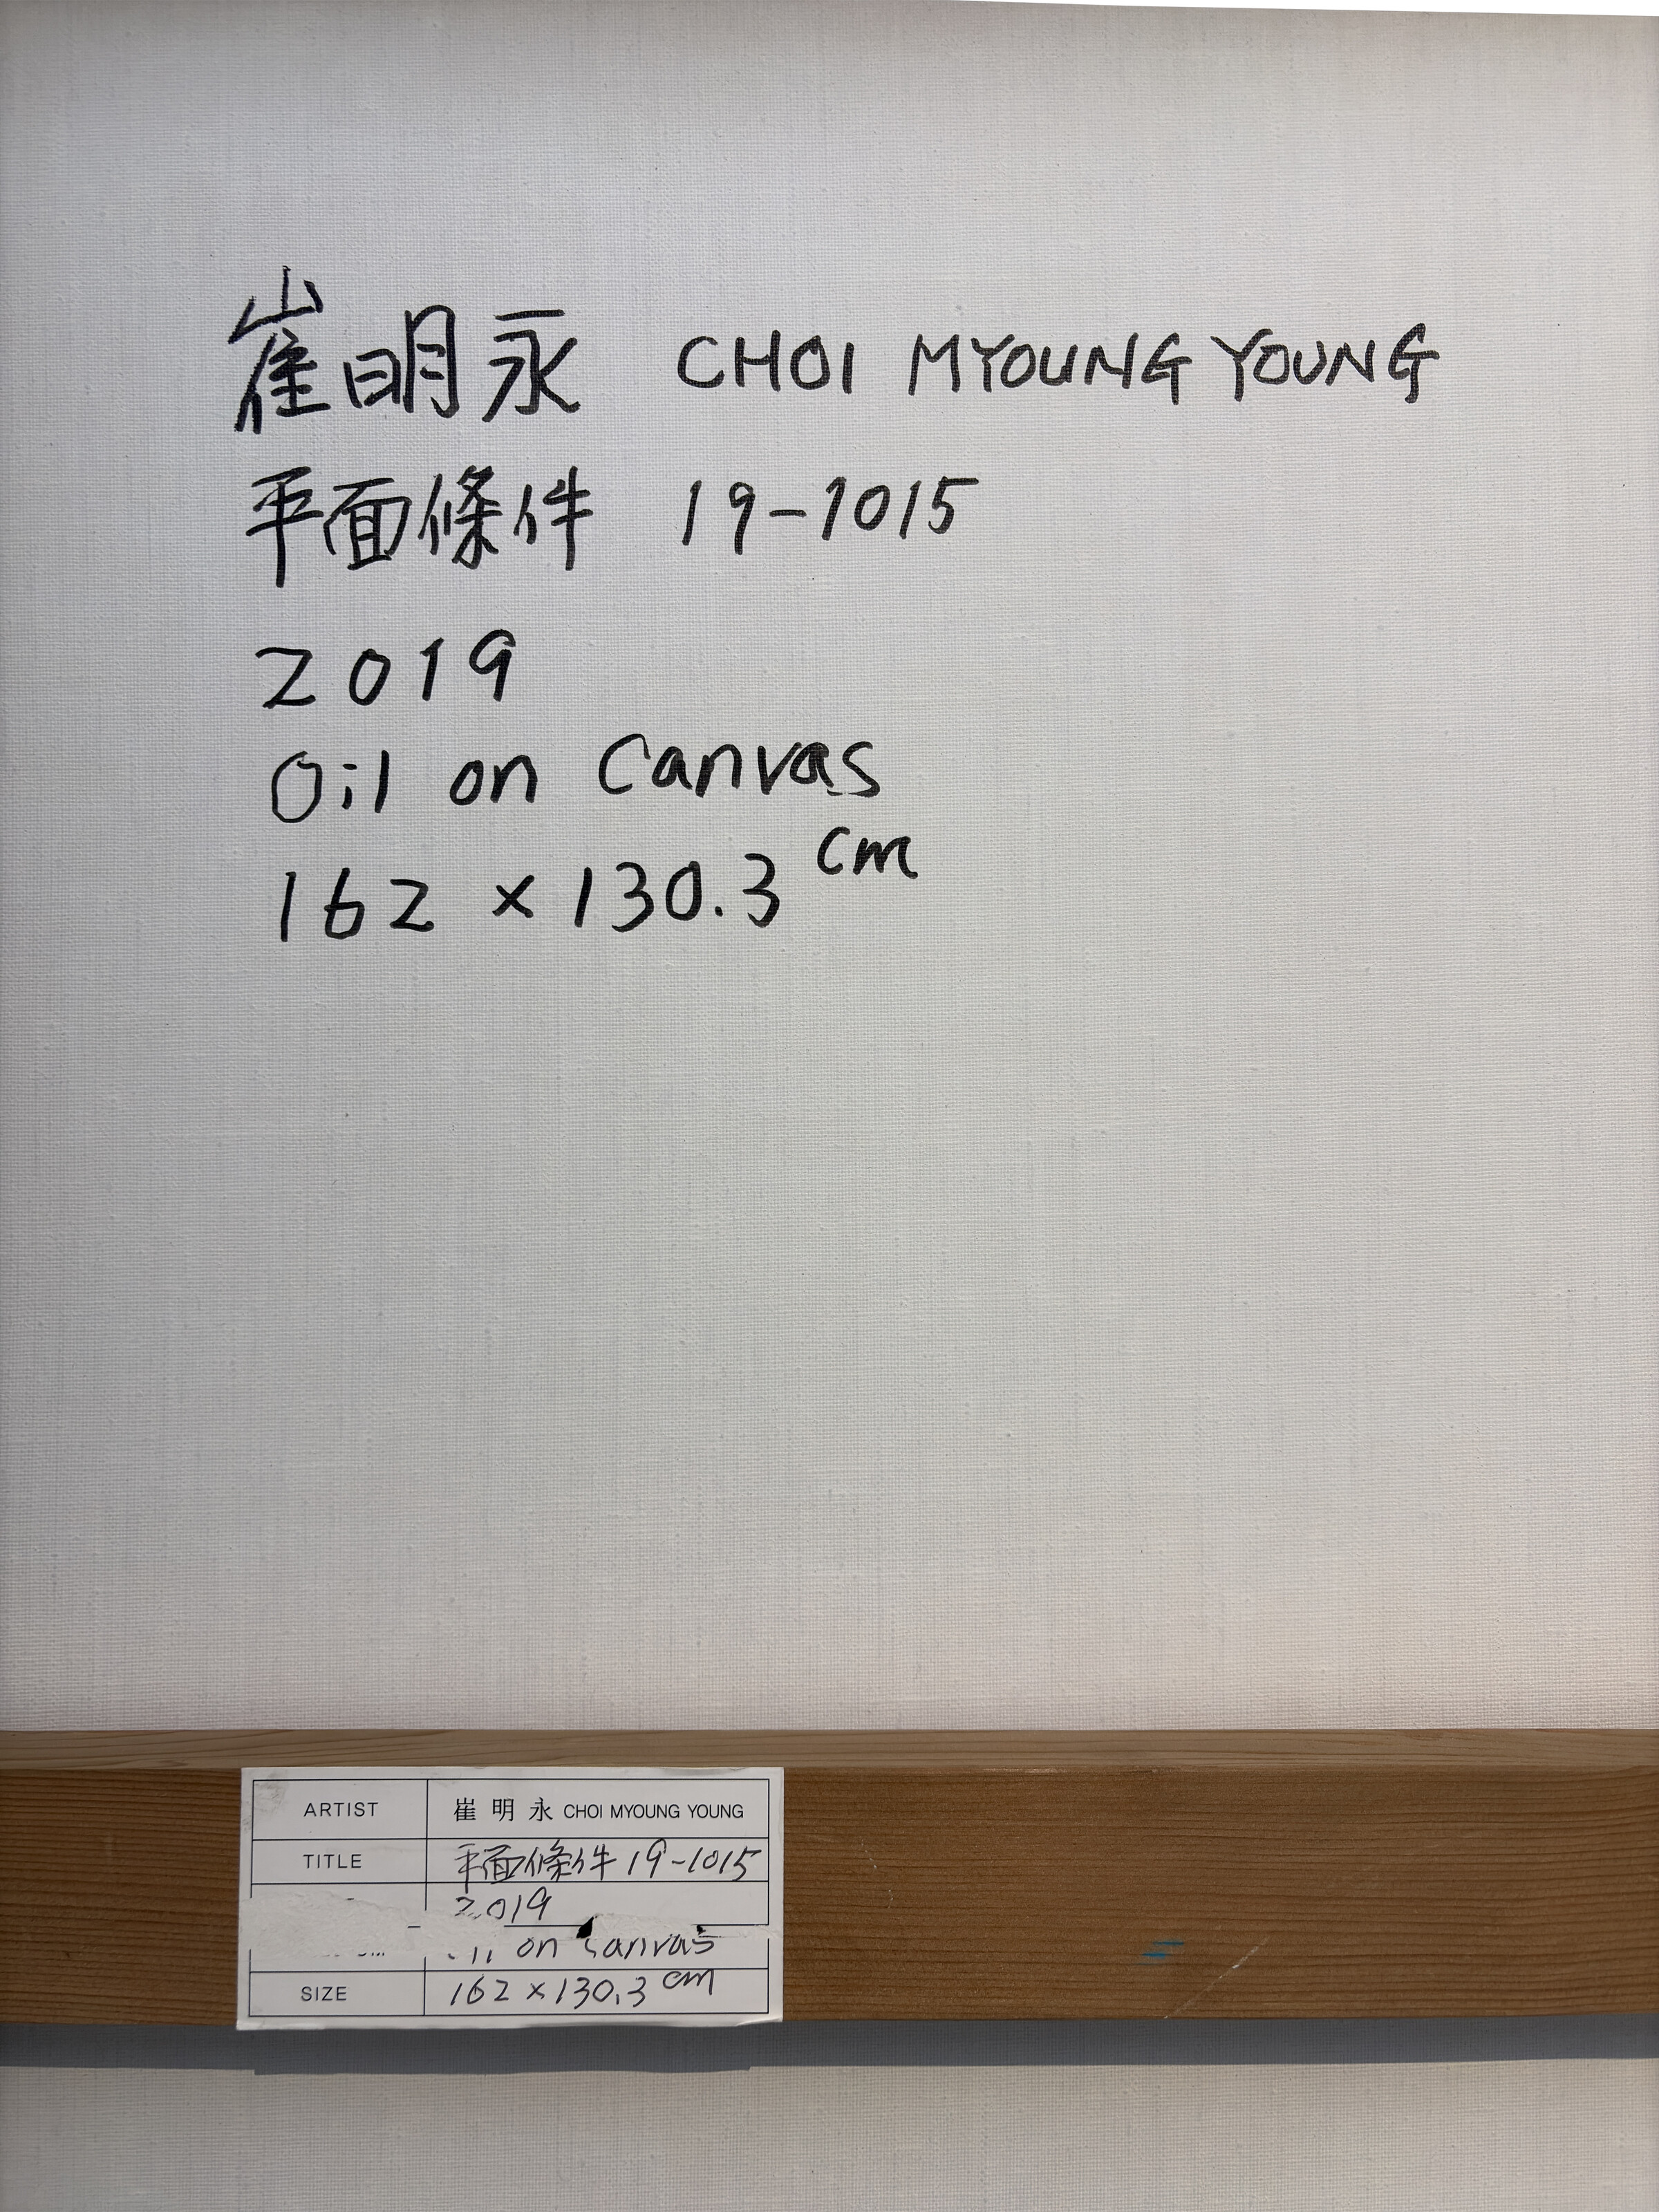 崔明永 CHOI MYOUNG YOUNG
平面條件 19-1015
2019
Oil on Canvas
162 × 130.3 cm
ARTIST 崔 明 永 CHOI MYOUNG YOUNG
TITLE 平面條件 19-1015
2019
on Canvas
SIZE 162 × 130.3 cm